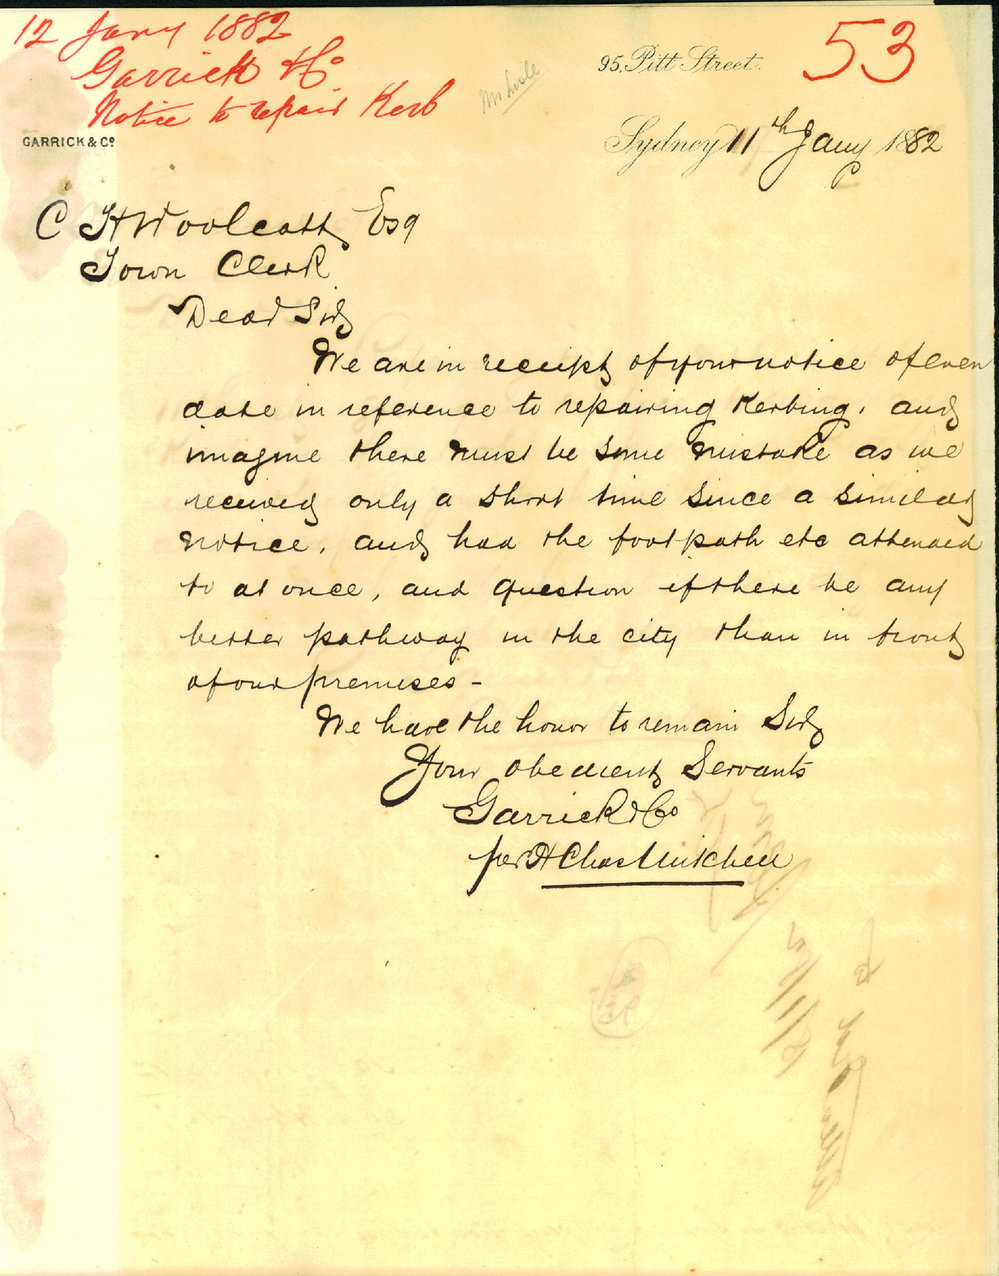 12 Jany 1882
Garrick & Co
Notice to repair Kerb
53
95, Pitt Street.
GARRICK & Co
Sydney 11th Jany 1882
C H Woolcott Esq
Town Clerk
Dear Sir
We are in receipt of your notice of even
date in reference to repairing Kerbing, and
imagine there must be some mistake as we
received only a short time since a similar
notice, and had the footpath etc attended
to at once, and question if there be any
better pathway in the city than in front
of our premises -
We have the honor to remain Sir
Your obedient Servants
Garrick & Co
per H Chas Mitchell